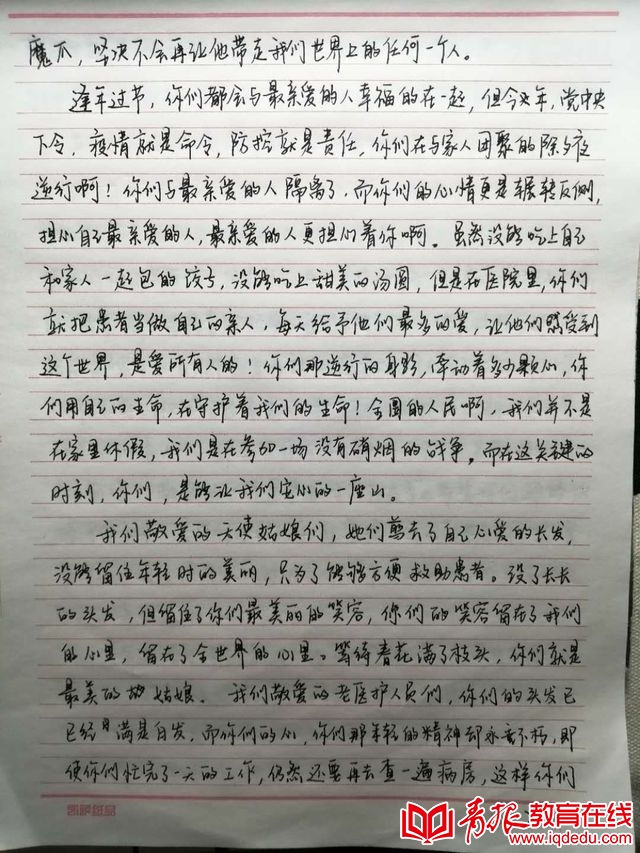 魔爪，坚决不会再让他带走我们世界上的任何一个人。
逢年过节，你们都会与最亲爱的人幸福的在一起，但今年，党中央
下令，疫情就是命令，防控就是责任，你们在与家人团聚的除夕夜
逆行啊！你们与最亲爱的人隔离了，而你们的心情更是辗转反侧，
担心自己最亲爱的人，最亲爱的人更担心着你啊。虽然没能吃上自己
和家人一起包的饺子，没能吃上甜美的汤圆，但是在医院里，你们
就把患者当做自己的亲人，每天给予他们最多的爱，让他们感受到
这个世界，是爱所有人的！你们那逆行的身影，牵动着多少颗心，你
们用自己的生命，在守护着我们的生命！全国的人民啊，我们并不是
在家里休假，我们是在参加一场没有硝烟的战争。而在这关键的
时刻，你们，是能让我们定心的一座山。
我们敬爱的天使姑娘们，她们剪去了自己心爱的长发，
没能留住年轻时的美丽，只为了能够方便救助患者。没了长长
的头发，但留住了你们最美丽的笑容，你们的笑容留在了我们
的心里，留在了全世界的心里。等待春花满了枝头，你们就是
最美的姑娘。我们敬爱的老医护人员们，你们的头发已
已经满是白发，而你们的心，你们那年轻的精神却永垂不朽，即
使你们忙完了一天的工作，仍然还要再去查一遍病房，这样你们
凯萌纸品
青报教育在线
www.iqdedu.com